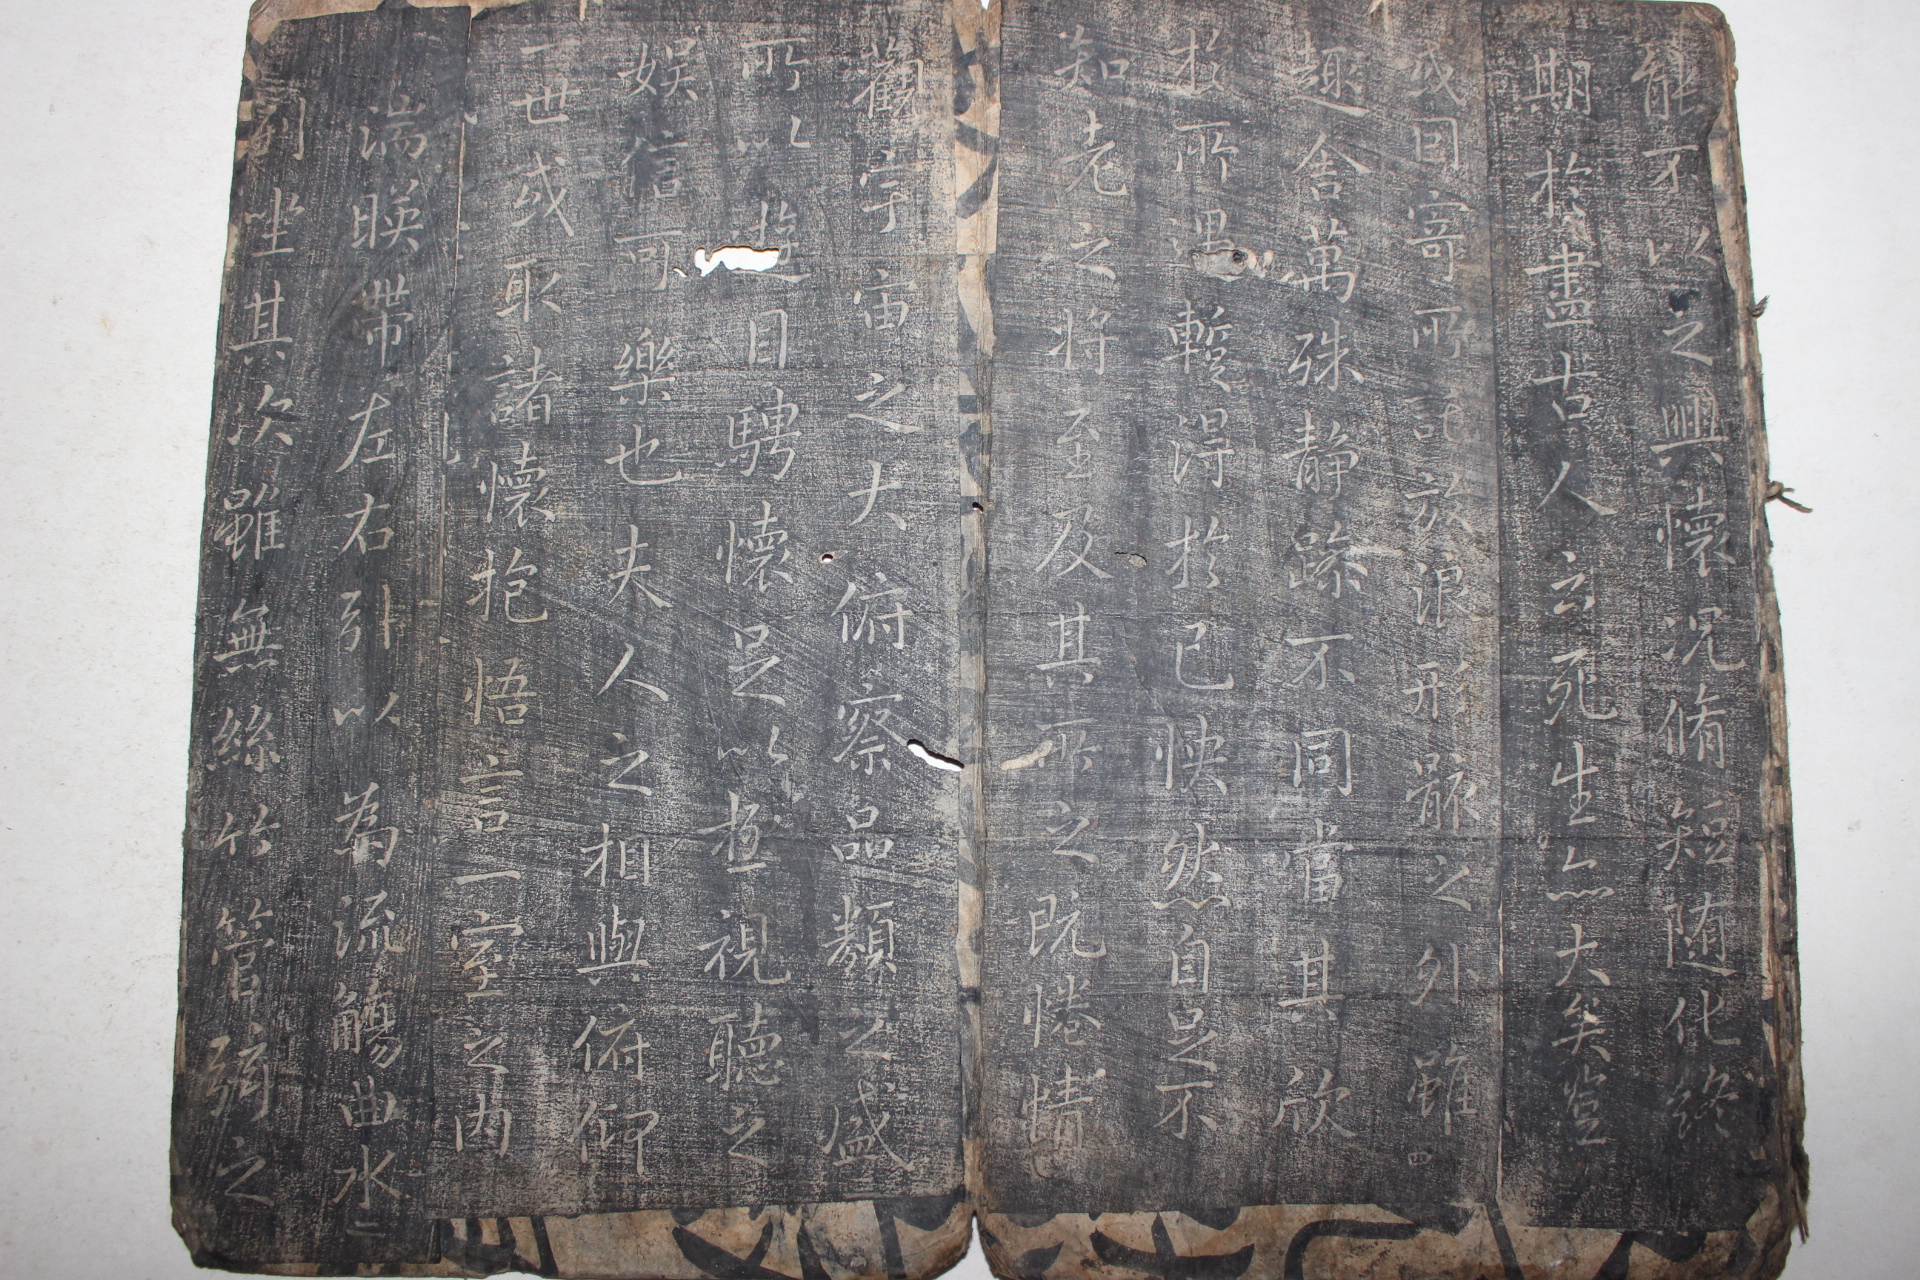 能不以之興懷況脩短随化終
期於盡古人云死生亦大矣豈
或因寄所託放浪形骸之外雖四
趣舍萬殊静躁不同當其欣
於所遇蹔得於己快然自足不
知老之將至及其所之既惓情
觀宇宙之大俯察品類之盛
所以遊目騁懷足以極視聽之
娛信可樂也夫人之相與俯仰
一世或取諸懷抱悟言一室之内
湍暎帶左右引以為流觴曲水二
列坐其次雖無絲竹管弦之